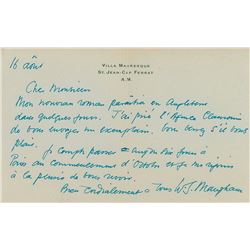 VILLA MAURESQUE
ST. JEAN-CAP FERRAT
A. M.
16 août
Cher Monsieur
Mon nouveau roman paraîtra en Angleterre
dans quelques jours. J'ai prié l'Agence
de vous envoyer un exemplaire. s'il vous
plait. Je compte passer dix jours à
Paris au commencement d'Octobre et je me réjouis
à la pensée de vous revoir.
Bien cordialement à vous W. S. Maugham